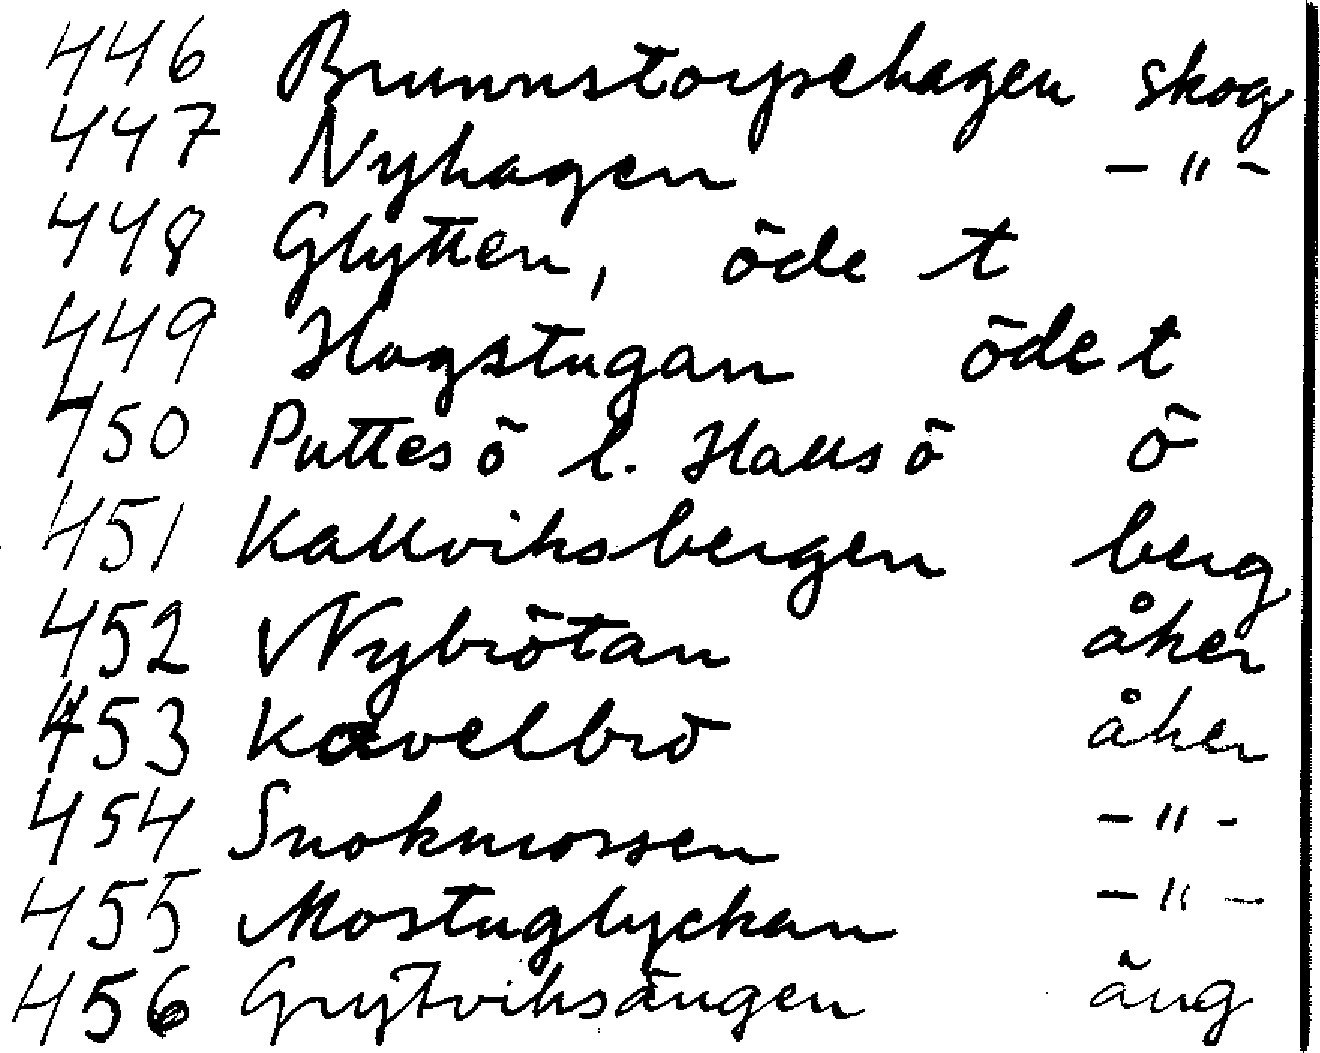 446 Brunnstorpehagen skog
447 Nyhagen - " -
448 Glytten, öde t
449 Hagstugan öde t
450 Puttesö l. Hallsö ö
451 Kallviksbergen berg
452 Nybrötan åker
453 Kavelbro åker
454 Snokmossen - " -
455 Mostuglyckan - " -
456 Grytviksängen äng